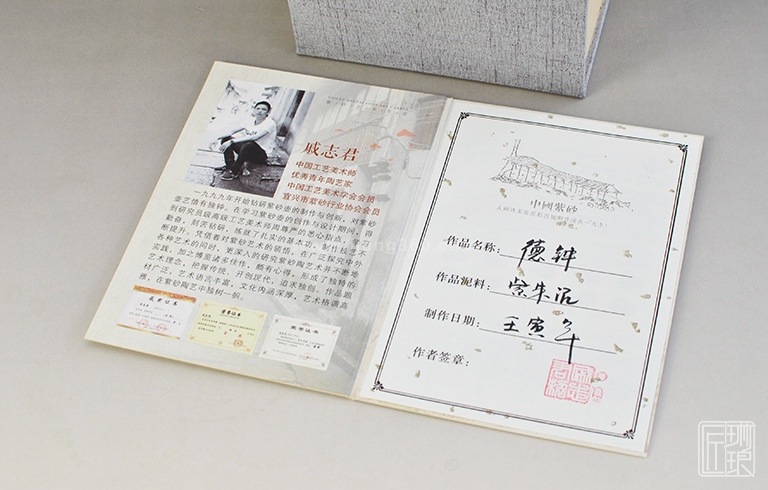 戚志君
中国工艺美术师
优秀青年陶艺家
中国工艺美术学会会员
宜兴市紫砂行业协会会员
一九九九年开始钻研紫砂壶的制作与创新，对紫砂
壶艺情有独钟。在学习紫砂壶的创作与设计期间，得
到研究员级高级工艺美术师周尊严的悉心指点，
勤奋，刻苦钻研，练就了扎实的基本功，制作技艺不
断提升。凭借着对紫砂艺术的领悟，在广泛探究中外
各种艺术的同时，更深入的研究紫砂陶艺术并不断地
实践，加之博览诸家佳作，颇有心得，形成了独特的
艺术理念，把握传统、开创现代，追求独创。作品题
材广泛，艺术语言丰富，文化内涵深厚，艺术格调高
雅，在紫砂陶艺中独树一帜。
获奖证书
荣誉证书
荣誉证书
中國紫砂
作品名称：德钟
作品泥料：紫朱泥
制作日期：壬寅年
作者签章：
匠
琳琅